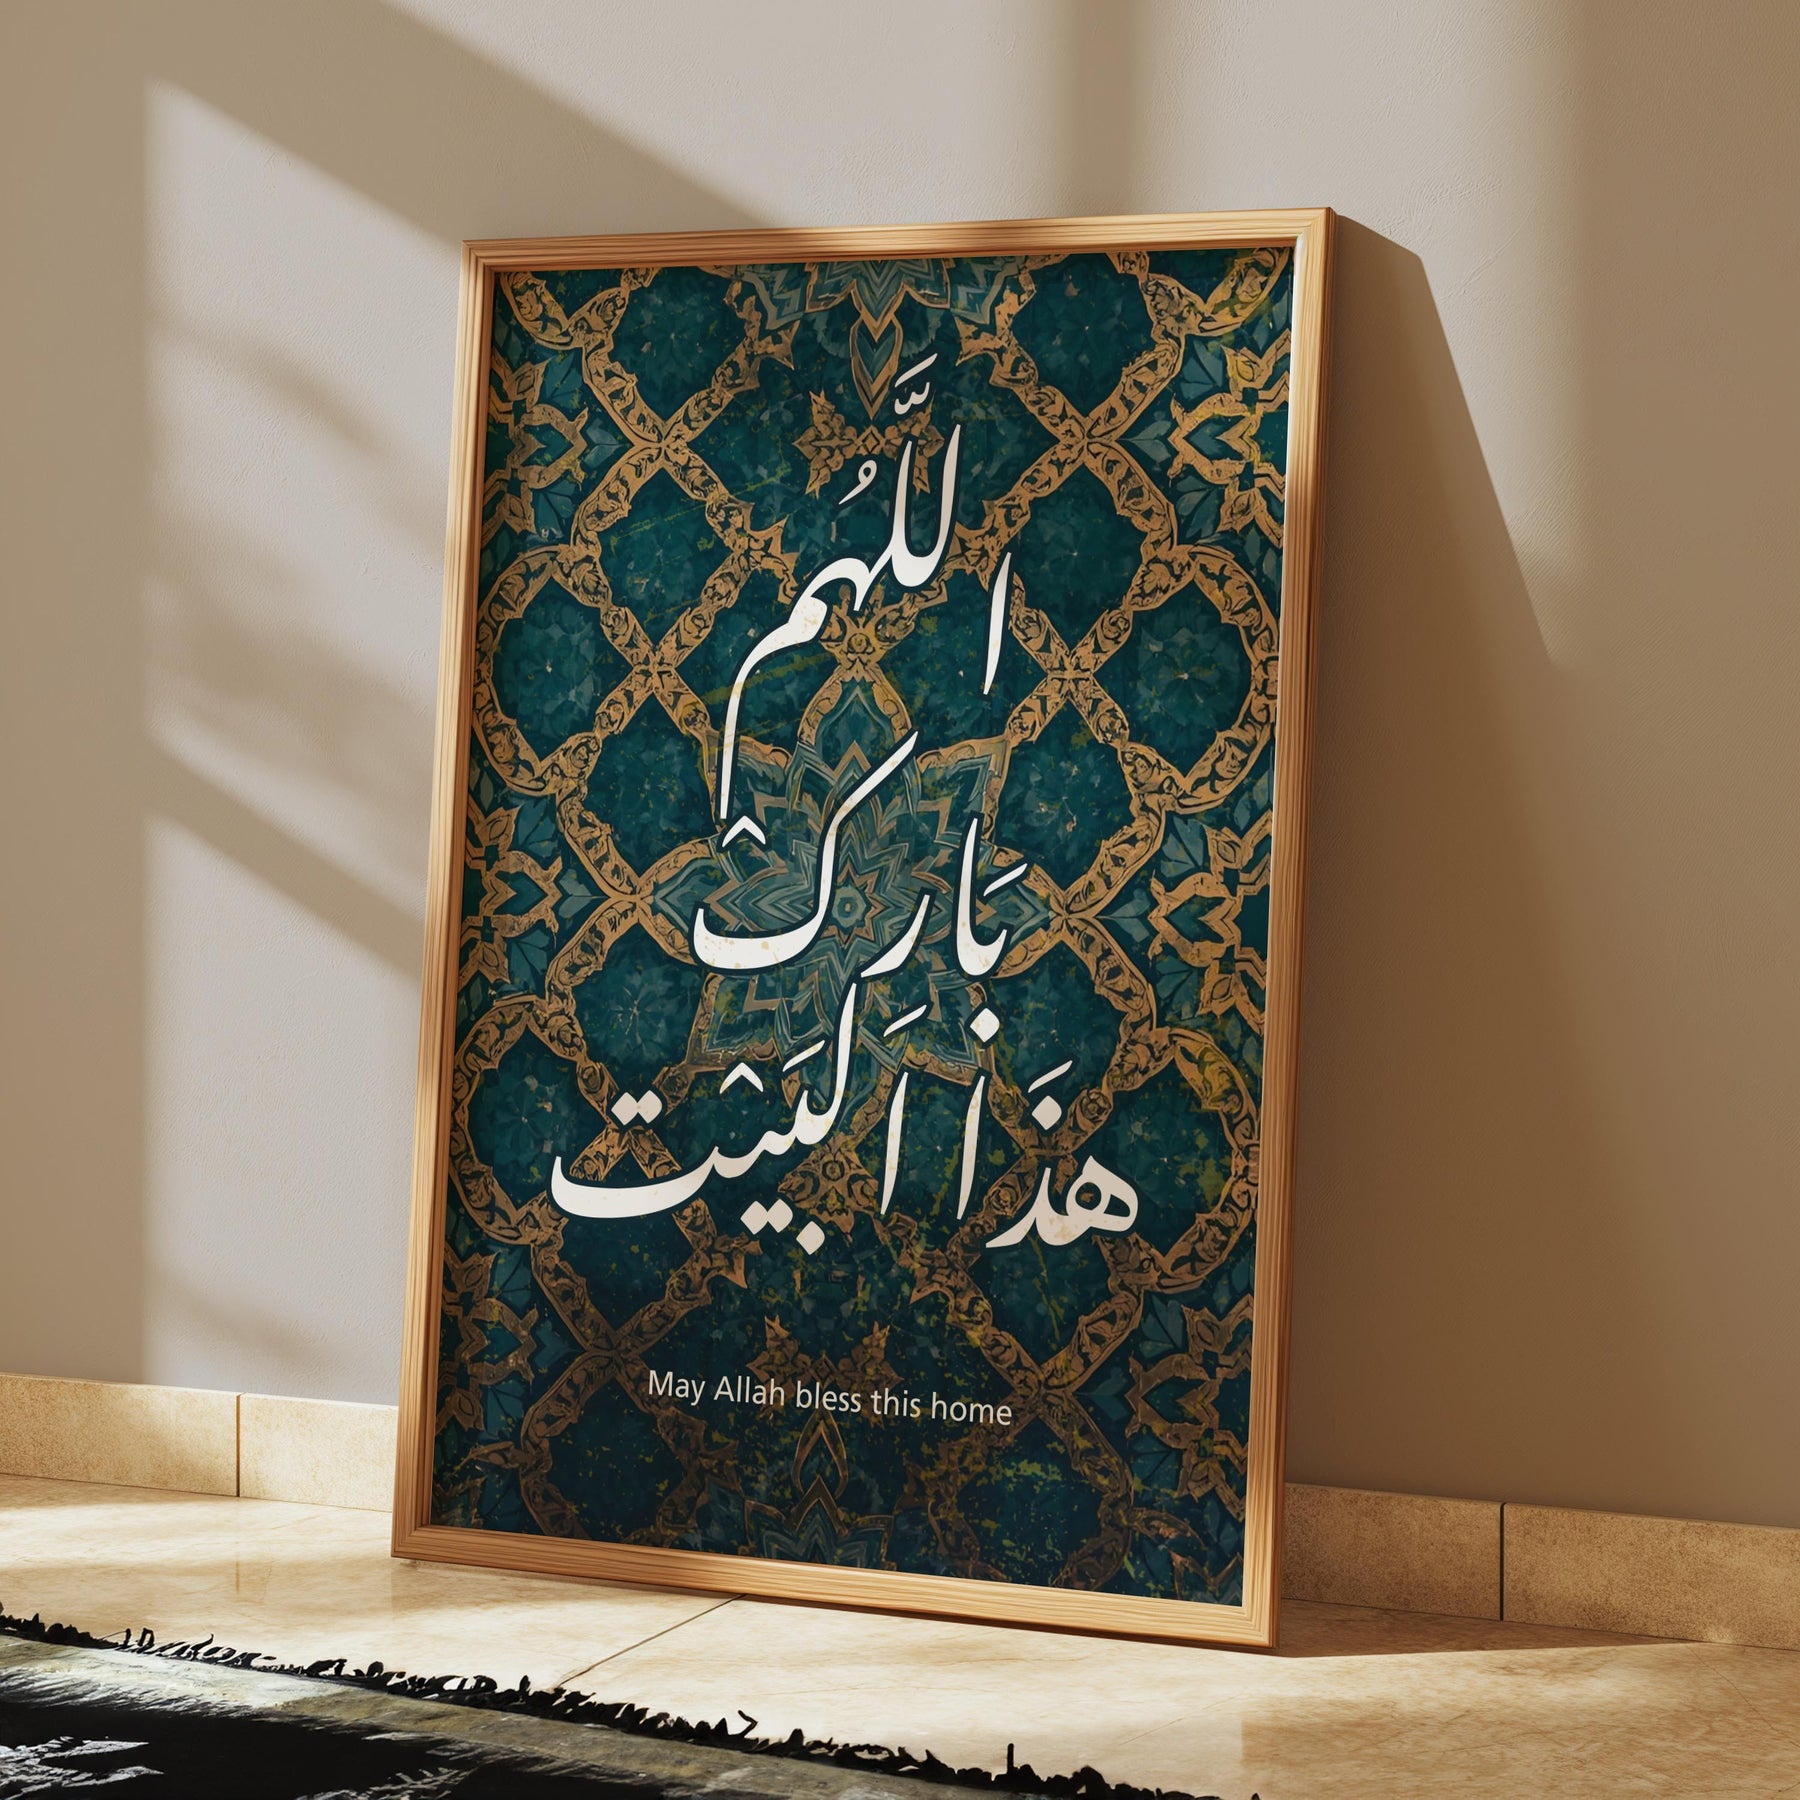 اللَّهُم
بَارِكْ
هَذَا اَلبَيْت
May Allah bless this home